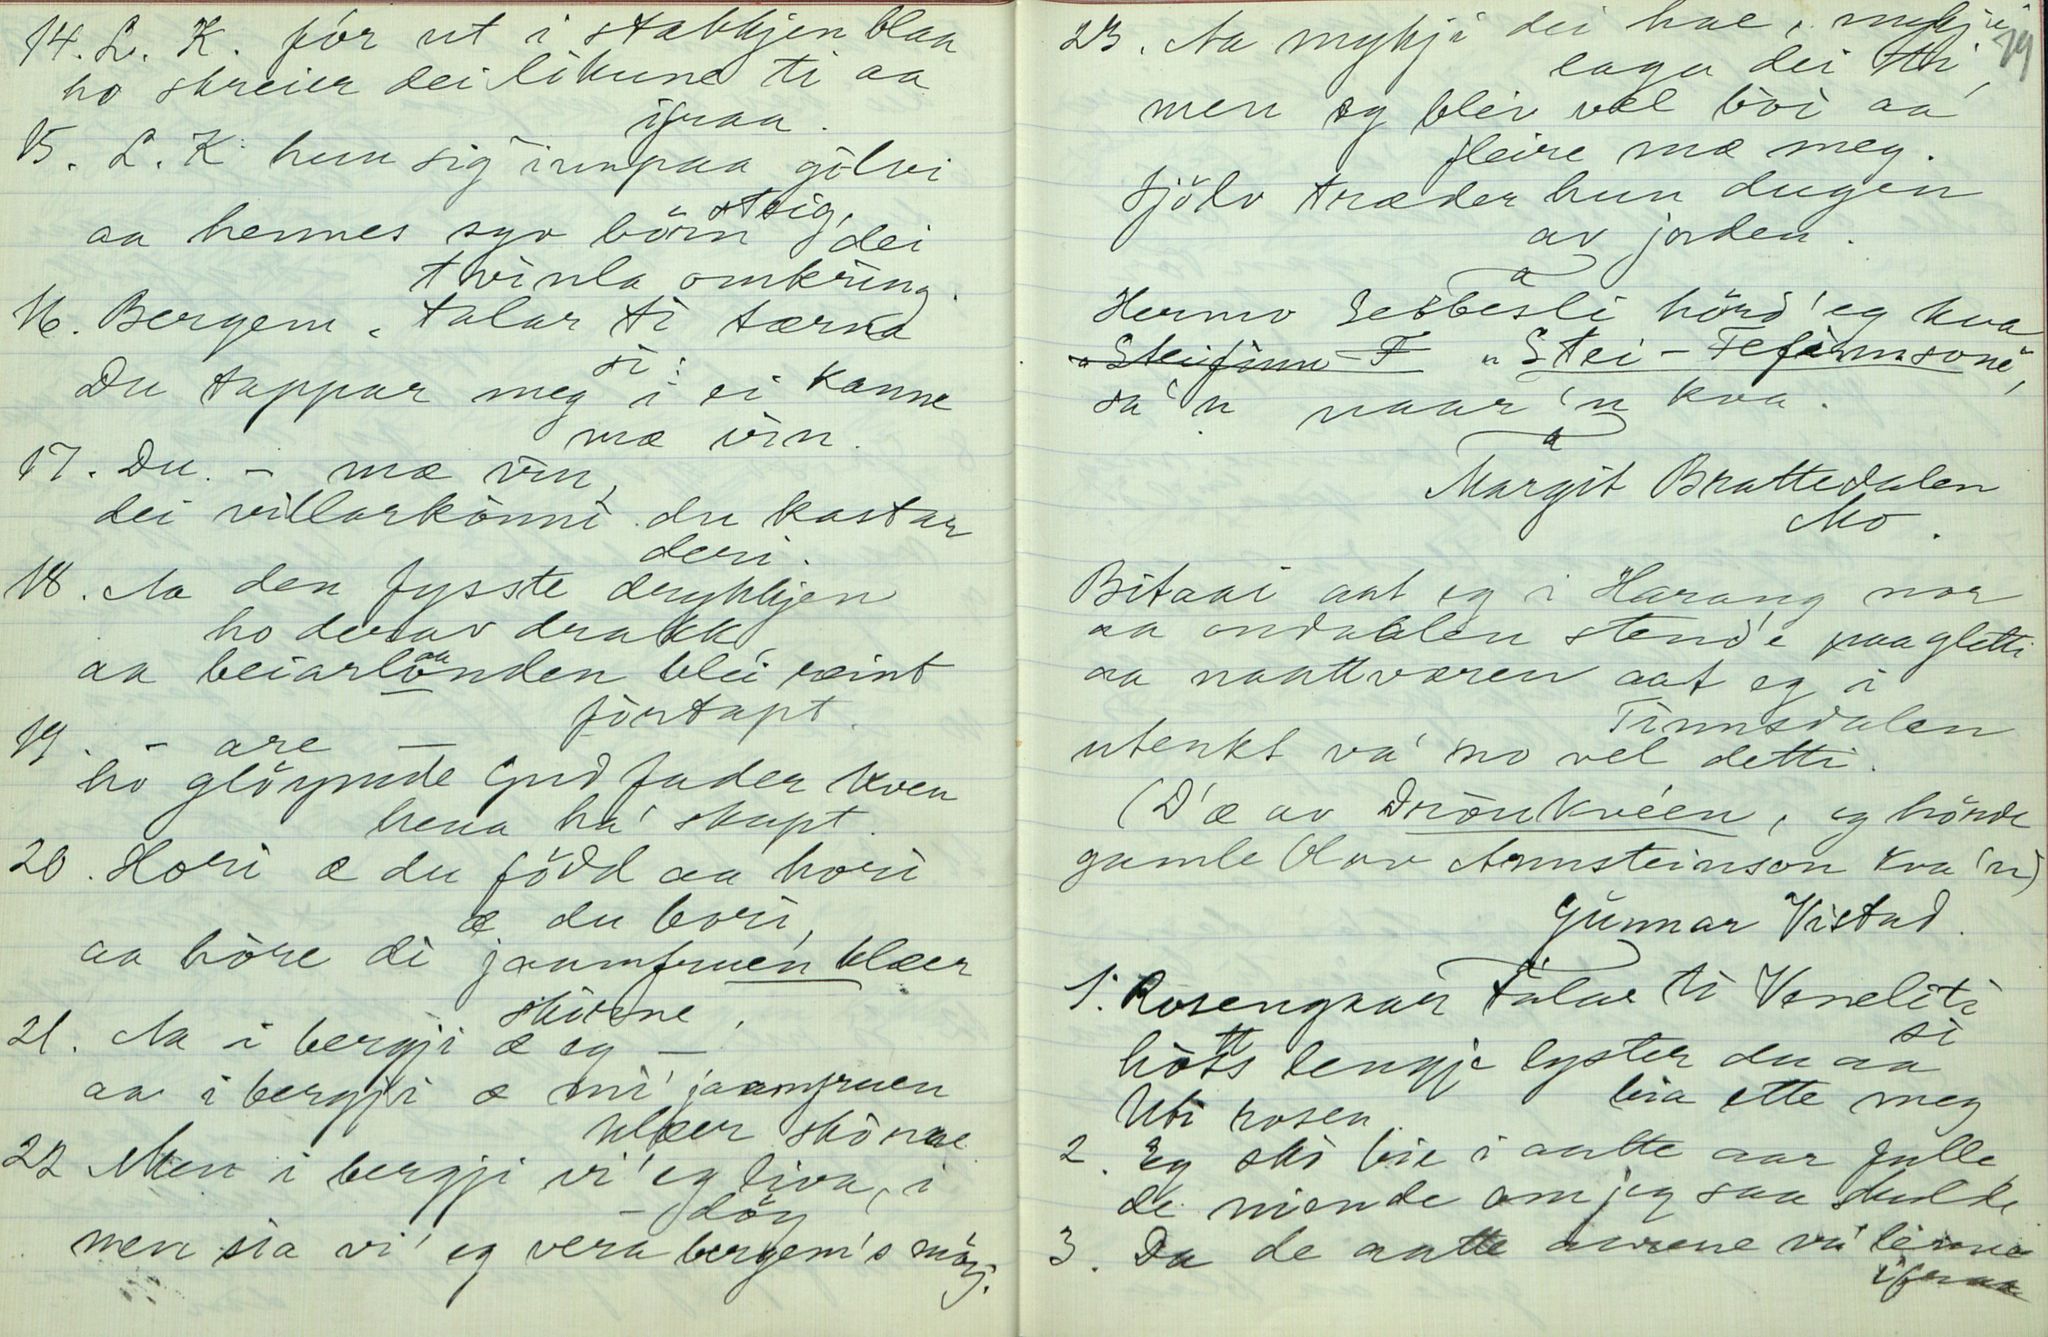 14. L. K. fór ut i stakkjen blaa
ho skreier dei likune ti aa
ifraa.
15. L. K. hun sig innpaa gólvi
steig,
aa hennes syv börn dei
tvinla omkring.
16. Bergem. talar ti tærna
si:
Du tappar meg i ei kanne
mæ vin.
17. Du. - mæ vin,
dei villarkönni du kastar
deri.
18. Aa den fysste drykkjen
ho derav drakk,
aa beiarlönden blei reint
förtapt.
19. - are -
ho glöymde Gud fader kven
hena ha' skapt.
20. Hori æ du född aa hori
æ du bori,
aa höre di jaamfruen klæer
skórne.
21. Aa i bergji æ eg -
aa i bergji æ mi' jaamfruen
klæer skórne
22 Men i bergji vi' eg liva, i
- döy
men sia vi' eg vera bergem's möy.
23. Aa mykji dei hae, mykji
19
laga dei ti,
men eg blei vel boi aa
fleire mæ meg.
sjölv træder hun dugen
av jorden.
Hermo hörd' eg kva
Steifinn - F "Stei-Fefinnsone",
sa 'n naar 'n kva.
Margit Brattedalen
Mo.
Bitaai aat eg i Harang nor
aa ondaalen stend'e paa gletti
aa naattværen aat eg i
Tinnsdalen
utenkt va' mo vel detti.
(D'æ av Drönkvéen, eg hörde
gamle Olav Aannsteinson kva 'n)
Gunnar Vistad.
1. Rosengaar talar ti Veneliti
si
hótt lengje lyster du aa
bia ette meg
Uti rosen
2. Eg ski bie i aatte aar fulle
de niende om jeg saa skulde
3. Da de aatte aarene va' lionne
ifraa